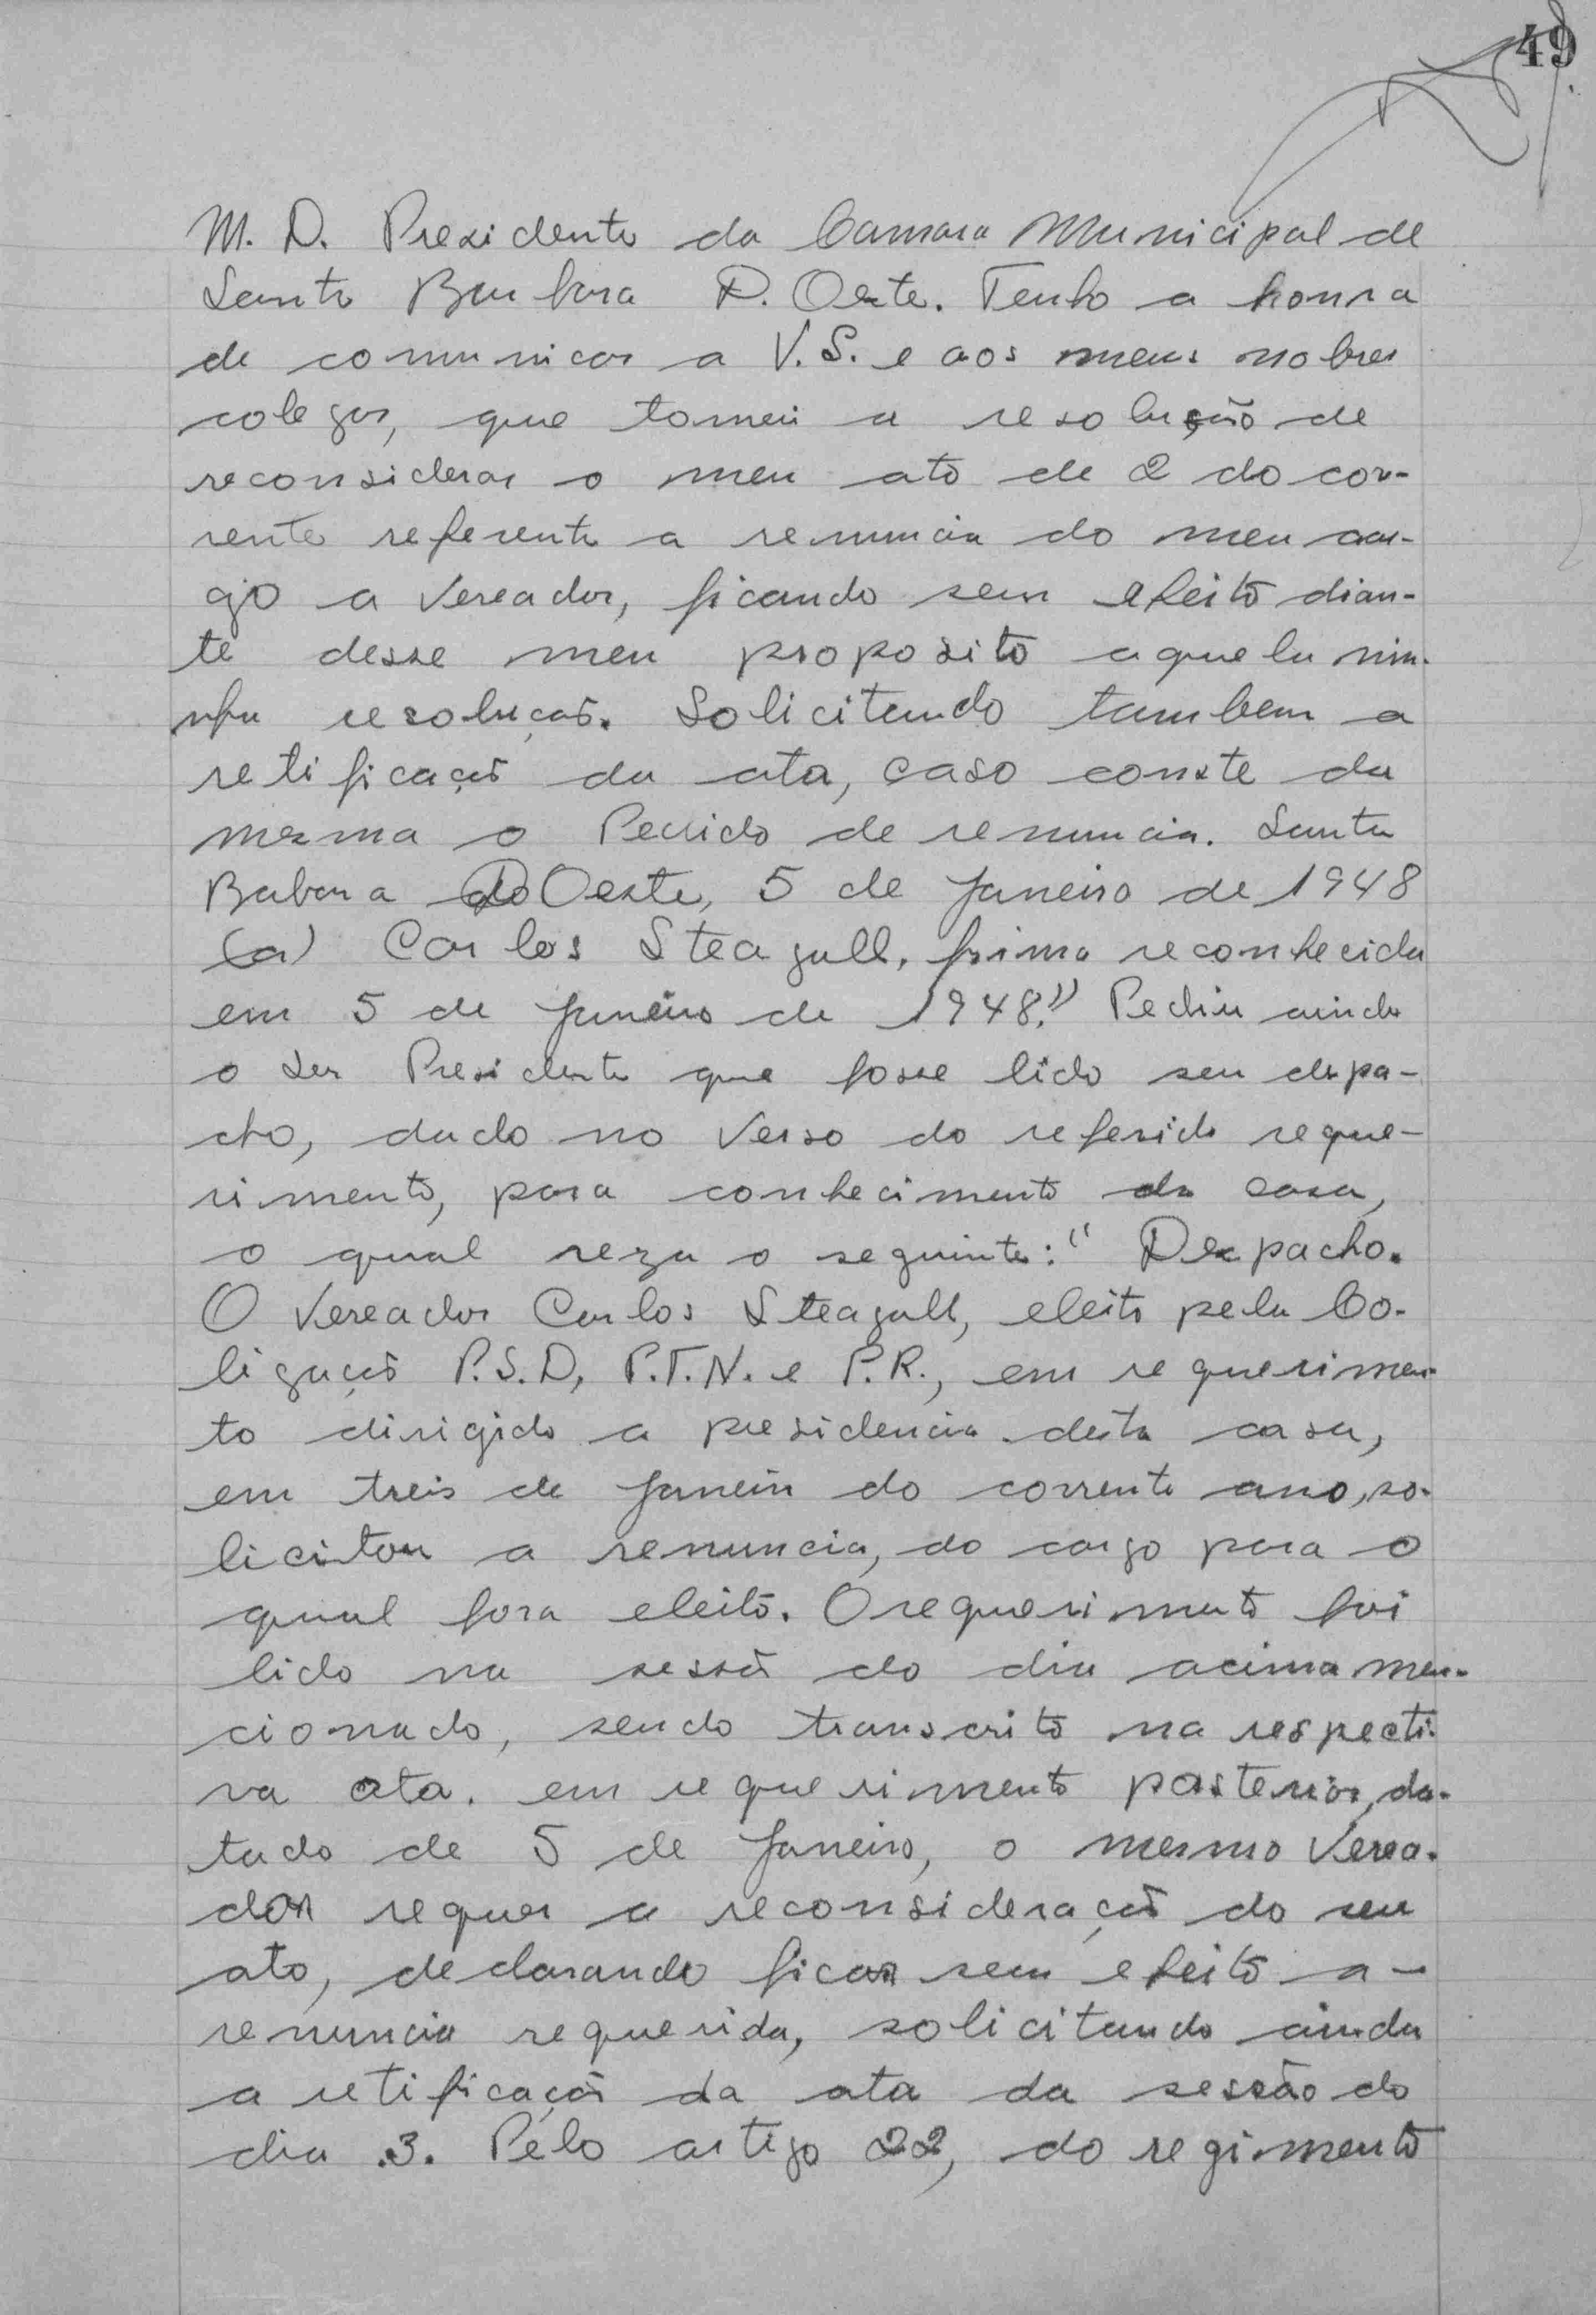 49
M. D. Presidente da Camara Municipal de
Santa Barbara D. Oeste. Tenho a honra
de comunicar a V. S. e aos meus nobres
colegas, que tomei a resolução de
reconsiderar o meu ato de 2 do cor-
rente referente a renuncia do meu car-
go a Vereador, ficando sem efeito dian-
te desse meu proposito aquela mi-
nha resolução. Solicitando tambem a
retificação da ata, caso conste da
mesma o Pedido de renuncia. Santa
Babara do Oeste, 5 de Janeiro de 1948
(a) Carlos Steagall, firma reconhecida
em 5 de Janeiro de 1948." Pediu ainda
o Snr Presidente que fosse lido seu despa-
cho, dado no Verso do referido reque-
rimento, para conhecimento da casa,
o qual reza o seguinte: "Despacho.
O Vereador Carlos Steagall, eleito pela Co-
ligação P.S.D, P.T.N. e P.R., em requerimen-
to dirigido a presidencia desta casa,
em treis de Janeiro do corrente ano, so-
licitou a renuncia, do cargo para o
qual fora eleito. O requerimento foi
lido na sessão do dia acima men-
cionado, sendo transcrito na respecti-
va ata. em requerimento posterior, da-
tado de 5 de Janeiro, o mesmo Verea-
dor requer a reconsideração do seu
ato, declarando ficar sem efeito a-
renuncia requerida, solicitando ainda
a retificação da ata da sessão do
dia 3. Pelo artigo 22, do regimento